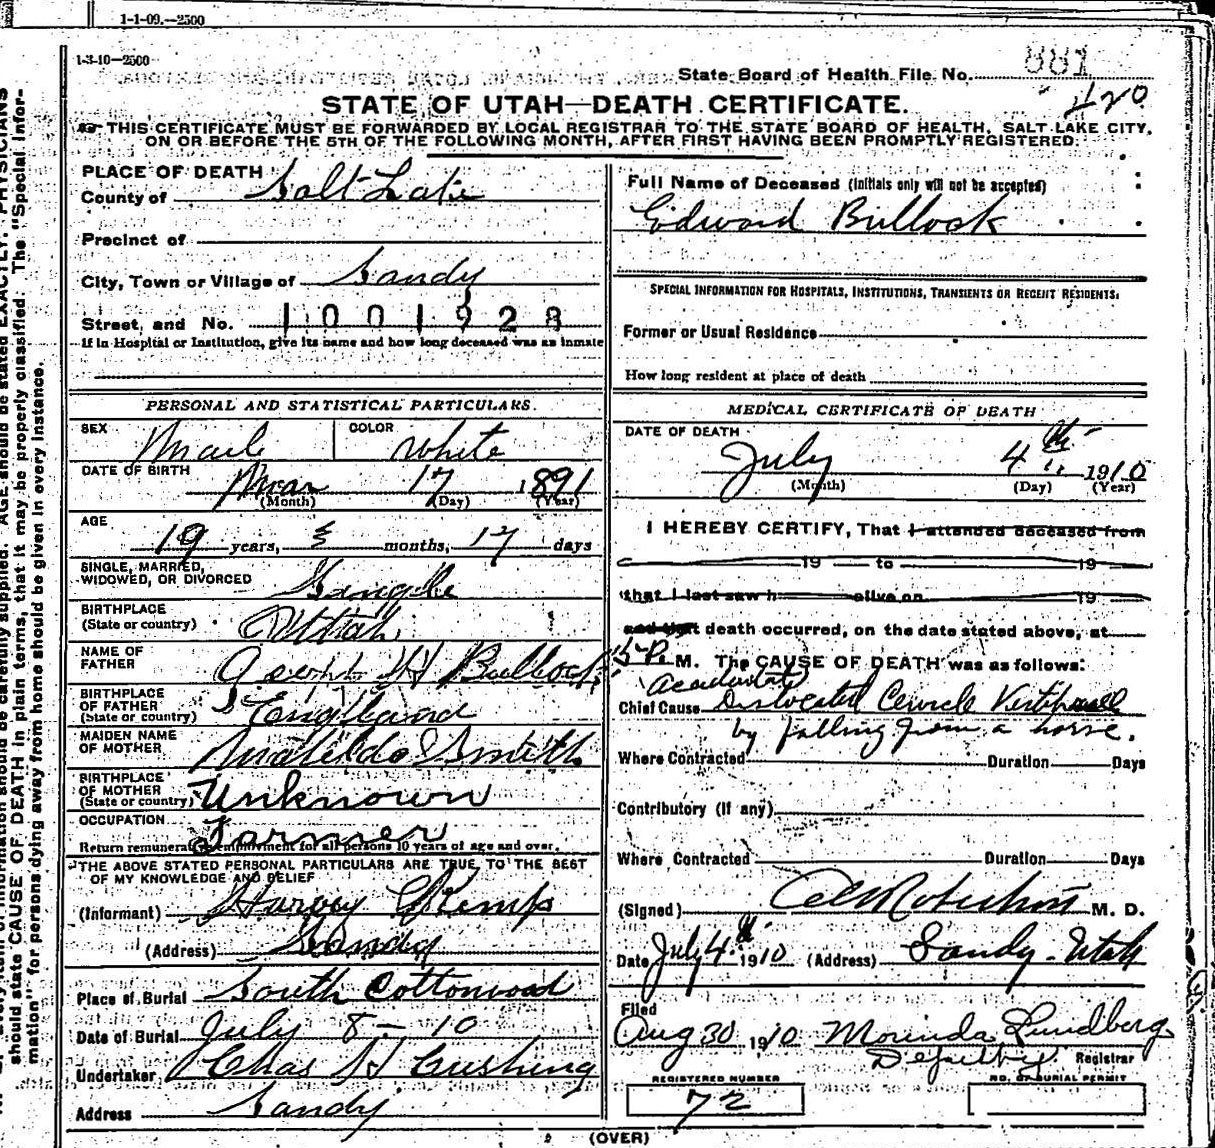 1-1-09.—2500
1-3-10—2500
State Board of Health File No. 881
420
STATE OF UTAH—DEATH CERTIFICATE.
THIS CERTIFICATE MUST BE FORWARDED BY LOCAL REGISTRAR TO THE STATE BOARD OF HEALTH, SALT LAKE CITY,
ON OR BEFORE THE 5TH OF THE FOLLOWING MONTH, AFTER FIRST HAVING BEEN PROMPTLY REGISTERED.
PLACE OF DEATH
County of Salt Lake
Precinct of
City, Town or Village of Sandy
Street, and No. 1001928
If in Hospital or Institution, give its name and how long deceased was an inmate
PERSONAL AND STATISTICAL PARTICULARS.
SEX Male COLOR White
DATE OF BIRTH
Mar 17 1891
(Month) (Day) (Year)
AGE
19 years, 3 months, 17 days
SINGLE, MARRIED,
WIDOWED, OR DIVORCED Single
BIRTHPLACE
(State or country) Utah
NAME OF
FATHER H Bullock
BIRTHPLACE
OF FATHER
(State or country) England
MAIDEN NAME
OF MOTHER Matilda Smith
BIRTHPLACE
OF MOTHER
(State or country) Unknown
OCCUPATION Farmer
Return remunerative employment for all persons 10 years of age and over.
THE ABOVE STATED PERSONAL PARTICULARS ARE TRUE TO THE BEST
OF MY KNOWLEDGE AND BELIEF
(Informant) Harvey Kemp
(Address) Sandy
Place of Burial South Cottonwood
Date of Burial July 8-10
Undertaker Chas H Cushing
Address Sandy
Full Name of Deceased (Initials only will not be accepted)
Edward Bullock
SPECIAL INFORMATION FOR HOSPITALS, INSTITUTIONS, TRANSIENTS OR RECENT RESIDENTS.
Former or Usual Residence
How long resident at place of death
MEDICAL CERTIFICATE OF DEATH
DATE OF DEATH
July 4th 1910
(Month) (Day) (Year)
I HEREBY CERTIFY, That I attended deceased from
19 to 19
that I last saw h alive on 19
and that death occurred, on the date stated above, at
5 P. M. The CAUSE OF DEATH was as follows:
Accidental
Chief Cause Dislocated
by falling from a horse.
Where Contracted Duration Days
Contributory (if any)
Where Contracted Duration Days
(Signed) Robertson M. D.
Date July 4th 1910 (Address) Sandy-Utah
Filed
Aug 30 1910 Lundberg
Deputy Registrar
REGISTERED NUMBER NO. OF BURIAL PERMIT
72
(OVER)
AGE should be stated EXACTLY. PHYSICIANS
should state CAUSE OF DEATH in plain terms, that it may be properly classified. The "Special Infor-
mation" for persons dying away from home should be given in every instance.